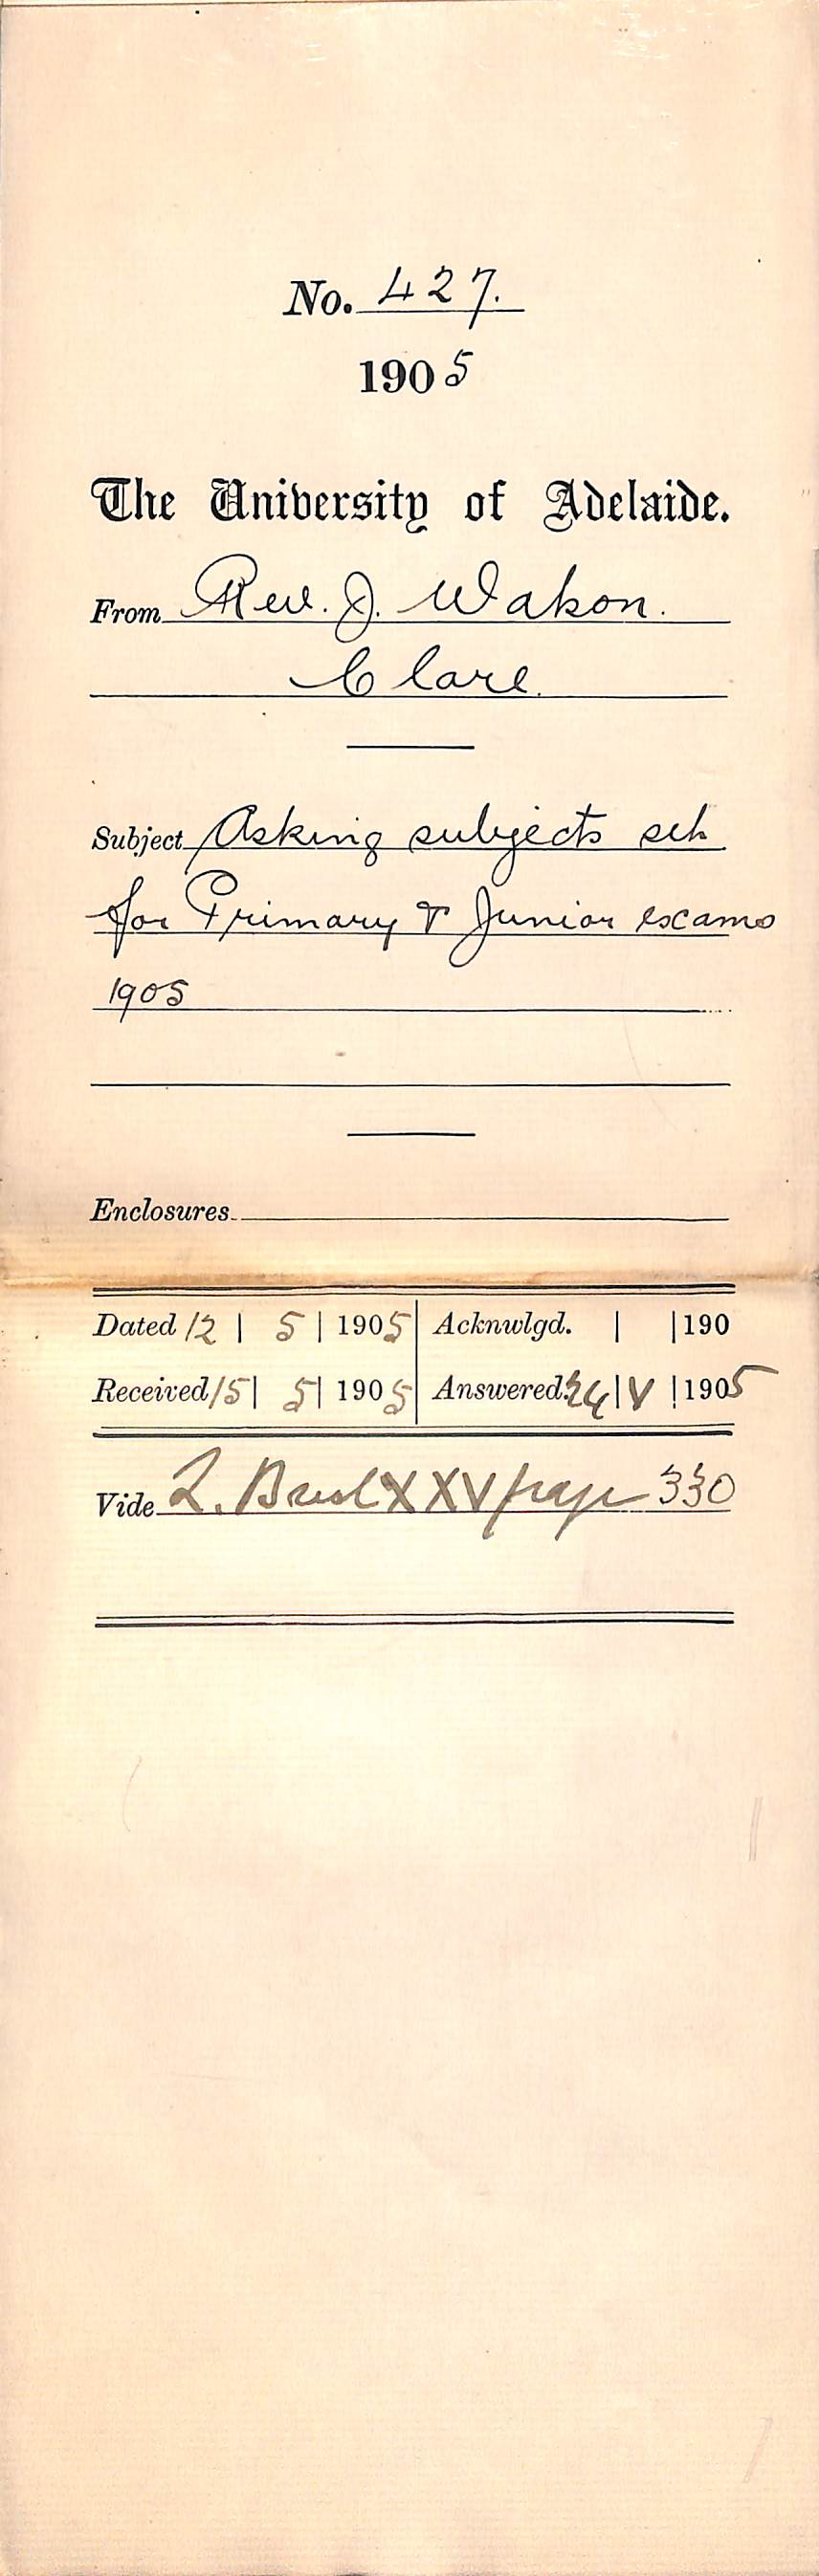 No. 427.
1905
The University of Adelaide.
From Rev. J. Wakon.
Clare.
Subject Asking subjects set
for Primary & Junior exams
1905
Enclosures
Dated 12 | 5 | 1905 Acknwlgd. | | 190
Received 15 | 5 | 1905 Answered 24 | V | 1905
Vide L. XXV page 330